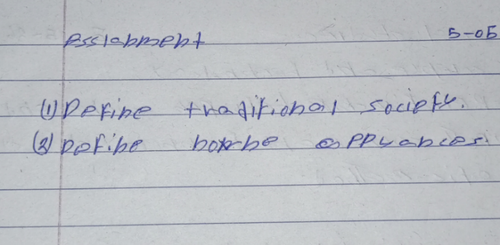 Assignment 5-05
(1) Define traditional society.
(2) Define home appliances.